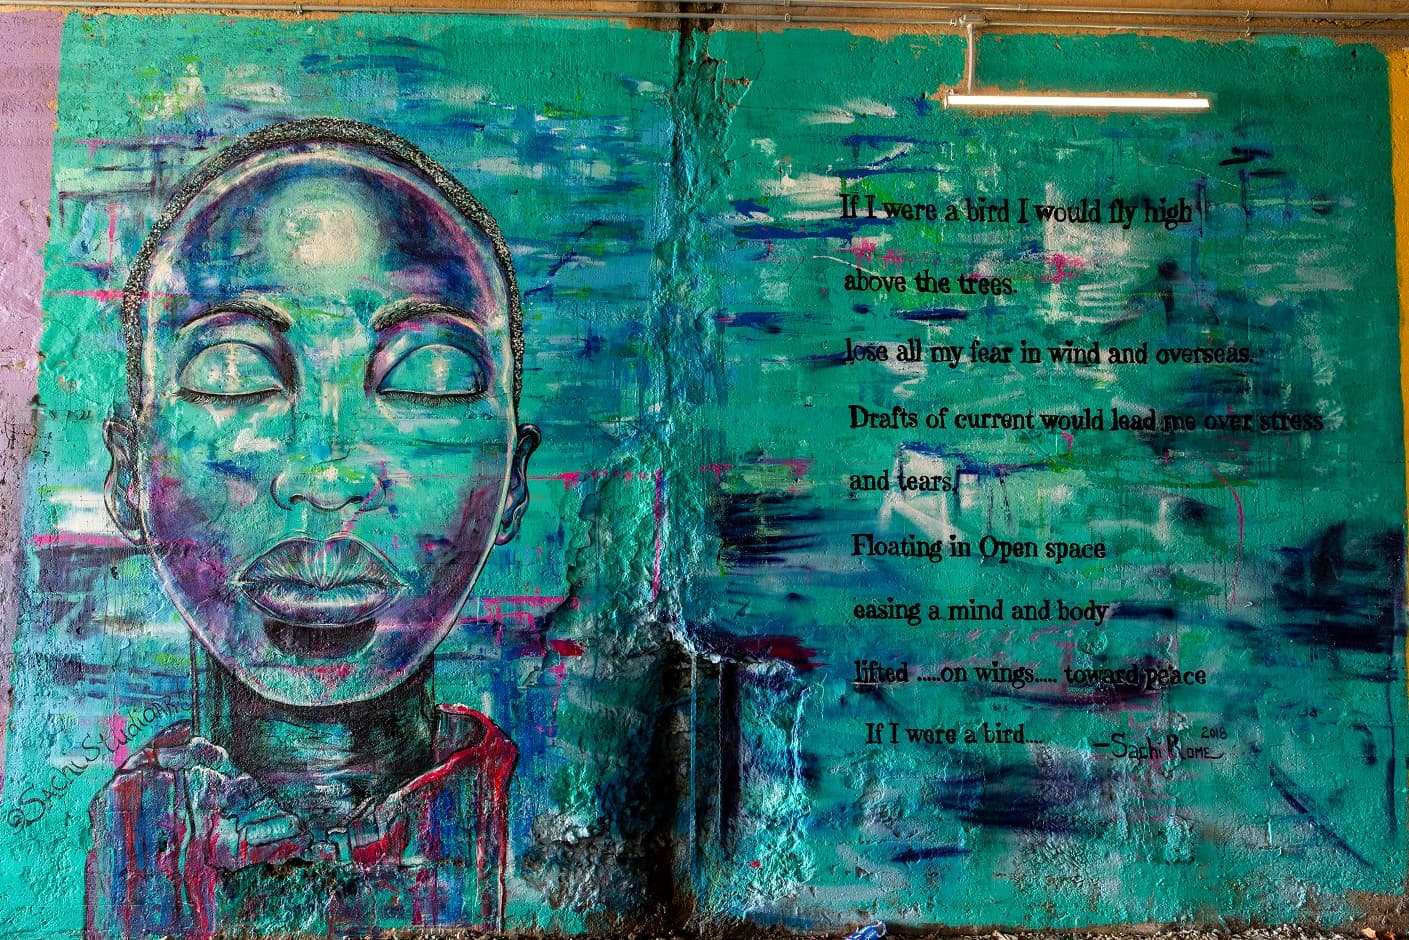 If I were a bird I would fly high
above the trees.
lose all my fear in wind and overseas.
Drafts of current would lead me over stress
and tears.
Floating in Open space
easing a mind and body
lifted .....on wings..... toward peace
If I were a bird....
—Sachi Rome 2018
@SachiStudioArts